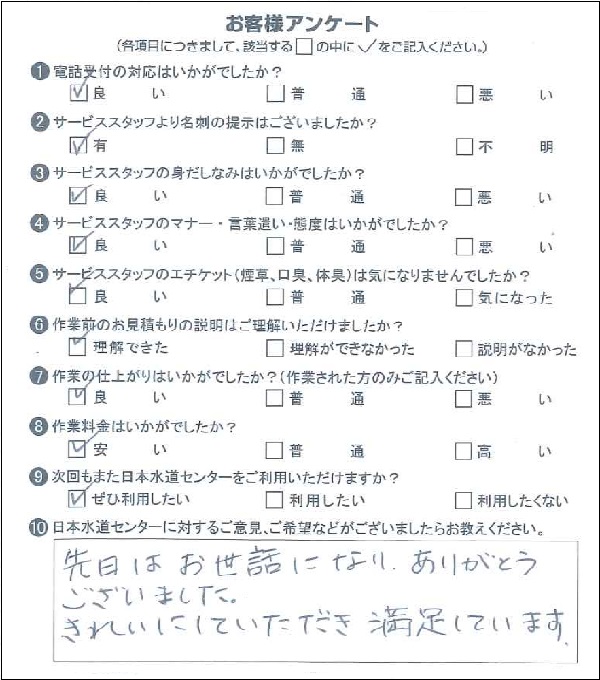 お客様アンケート
(各項目につきまして、該当する□の中に✓をご記入ください。)
❶電話受付の対応はいかがでしたか?
☑良い □普通 □悪い
❷サービススタッフより名刺の提示はございましたか?
☑有 □無 □不明
❸サービススタッフの身だしなみはいかがでしたか?
☑良い □普通 □悪い
❹サービススタッフのマナー・言葉遣い・態度はいかがでしたか?
☑良い □普通 □悪い
❺サービススタッフのエチケット(煙草、口臭、体臭)は気になりませんでしたか?
☑良い □普通 □気になった
❻作業前のお見積もりの説明はご理解いただけましたか?
☑理解できた □理解ができなかった □説明がなかった
❼作業の仕上がりはいかがでしたか?(作業された方のみご記入ください)
☑良い □普通 □悪い
❽作業料金はいかがでしたか?
☑安い □普通 □高い
❾次回もまた日本水道センターをご利用いただけますか?
☑ぜひ利用したい □利用したい □利用したくない
❿日本水道センターに対するご意見、ご希望などがございましたらお教えください。
先日はお世話になり、ありがとう
ございました。
きれいにしていただき満足しています。